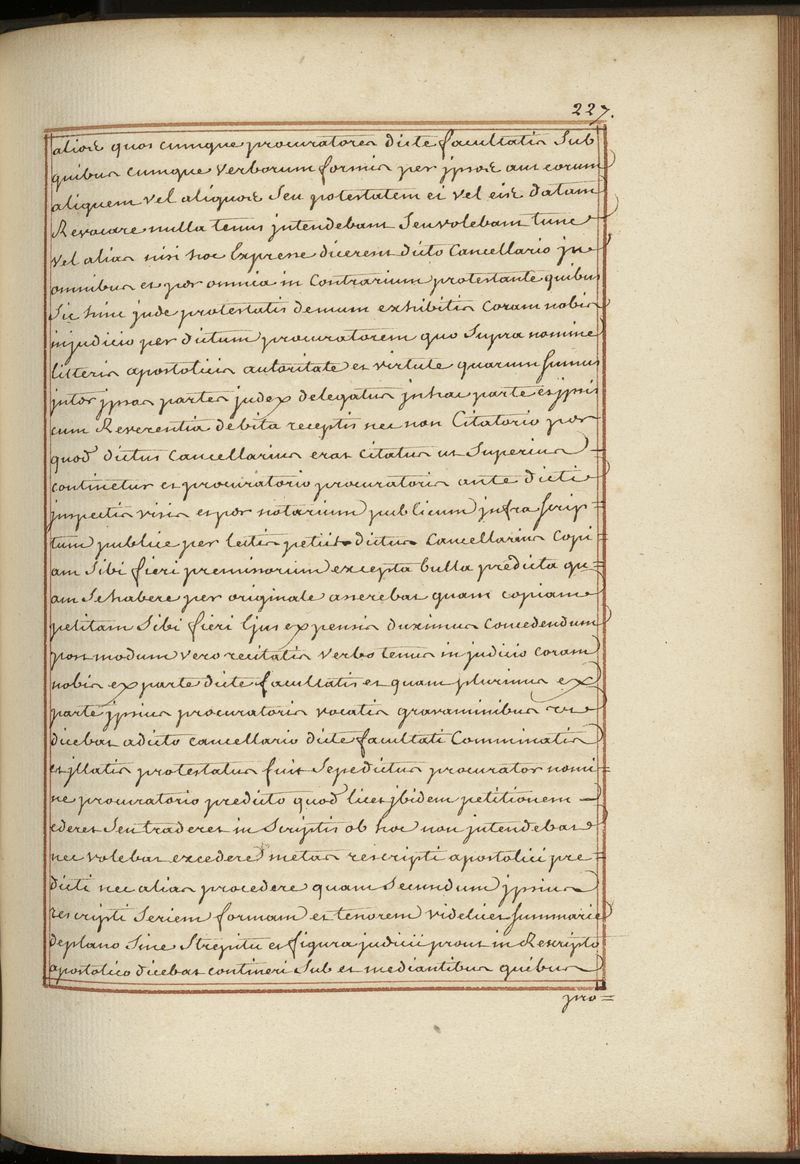 227.
alios quos cumque procuratores dicte facultatis Sub
quibus cumque verborum formis per jpsos aut eorum
aliquem vel aliquos Seu potestatem ei vel eis datam
Revocare nulla tenus jntendebant Seu volebant tunc
vel alias nisi hoc Expresse dicerent dicto Cancellario jn
omnibus et por omnia in Contrarium protestante quibus
Sic hinc jnde protestatis demum exhibitis Coram nobis
injudicio per dictum procuratorem quo Supra nomine
litteris apostolicis autoritate et virtute quarum Sumus
jntor jpsas partes judex delegatus jnhac parte et jpsis
cum Reverentia debita receptis nec non Citatorio por
quod dictus Cancellarius erat citatus ut Superius
continetur et procuratorio procuratoris ante dicti
jnspectis visis et por notarium publicum jnfra Scrip=
tum publice per lectis petiit dictus Cancellarius Copi=
am Sibi fieri premissorum excepta bulla predicta qu=
am Se habere per originale asserebat quam copiam
petitam Sibi fieri Ejus expensis duximus Concedendum
post modum vero recitatis verbo tenus in judicio coram
nobis ex parte dicte facultatis et quam plurimis ex
parte jpsius procuratoris vocatis gravaminibus ut
dicebat adicto cancellario dicte facultati Comminatis
et jllatis protestatus fuit Sepedictus procurator nomi=
ne procuratorio predicto quod licet jbidem petitionem
ederet Seu traderet in Scriptis ob hoc non jntendebat
nec volebat excedere metas rescripti apostolici pre=
dicti nec alias procedere quam Secundum jpsius
rescripti Seriem formam et tenorem videlicet Summarie
deplano Sine Strepitu et figura judicii prout in Rescripto
apostolico dicebat contineri Sub et mediantibus quibus
pro=